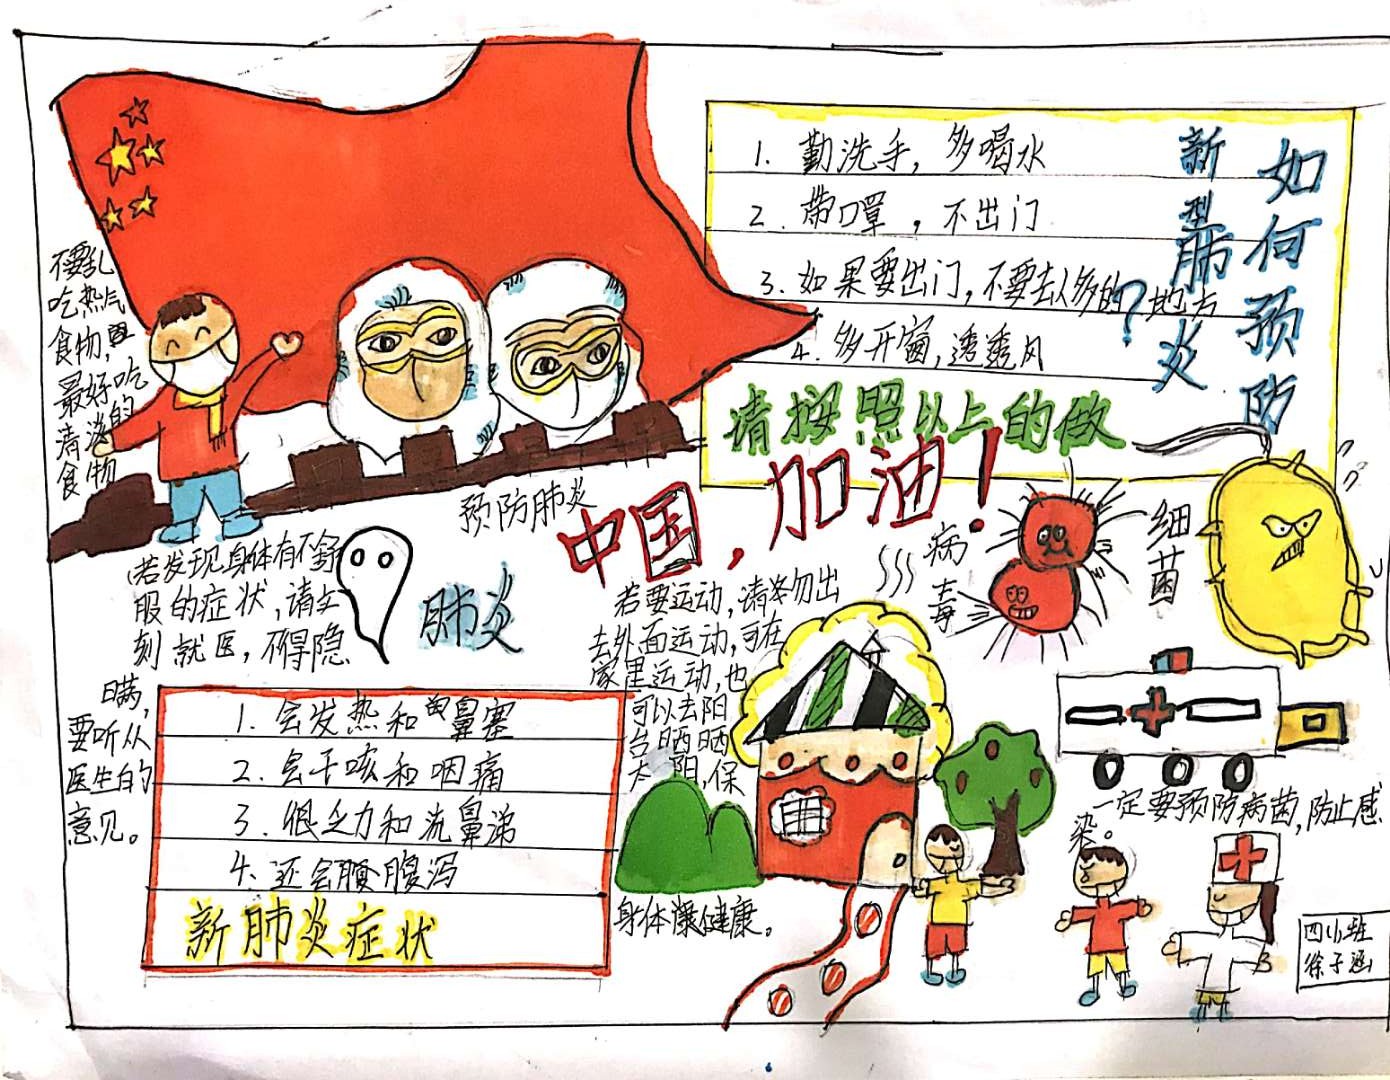 不要乱
吃热气
食物,
最好吃
清淡的
食物
1. 勤洗手，多喝水
2. 带口罩，不出门
3. 如果要出门，不要去人多的地方
4. 多开窗，透透风
如何预防
新型肺炎?
请按照以上的做
中国，加油！
预防肺炎
若发现身体有不舒
服的症状，请立
刻就医，不得隐
瞒，
要听从
医生的
意见。
肺炎
若要运动，请勿出
去外面运动，可在
家里运动，也
可以去阳
台晒晒
太阳，保
身体健康。
病毒
细菌
1. 会发热和鼻塞
2. 会干咳和咽痛
3. 很乏力和流鼻涕
4. 还会腹泻
新肺炎症状
一定要预防病菌，防止感
染。
徐子涵